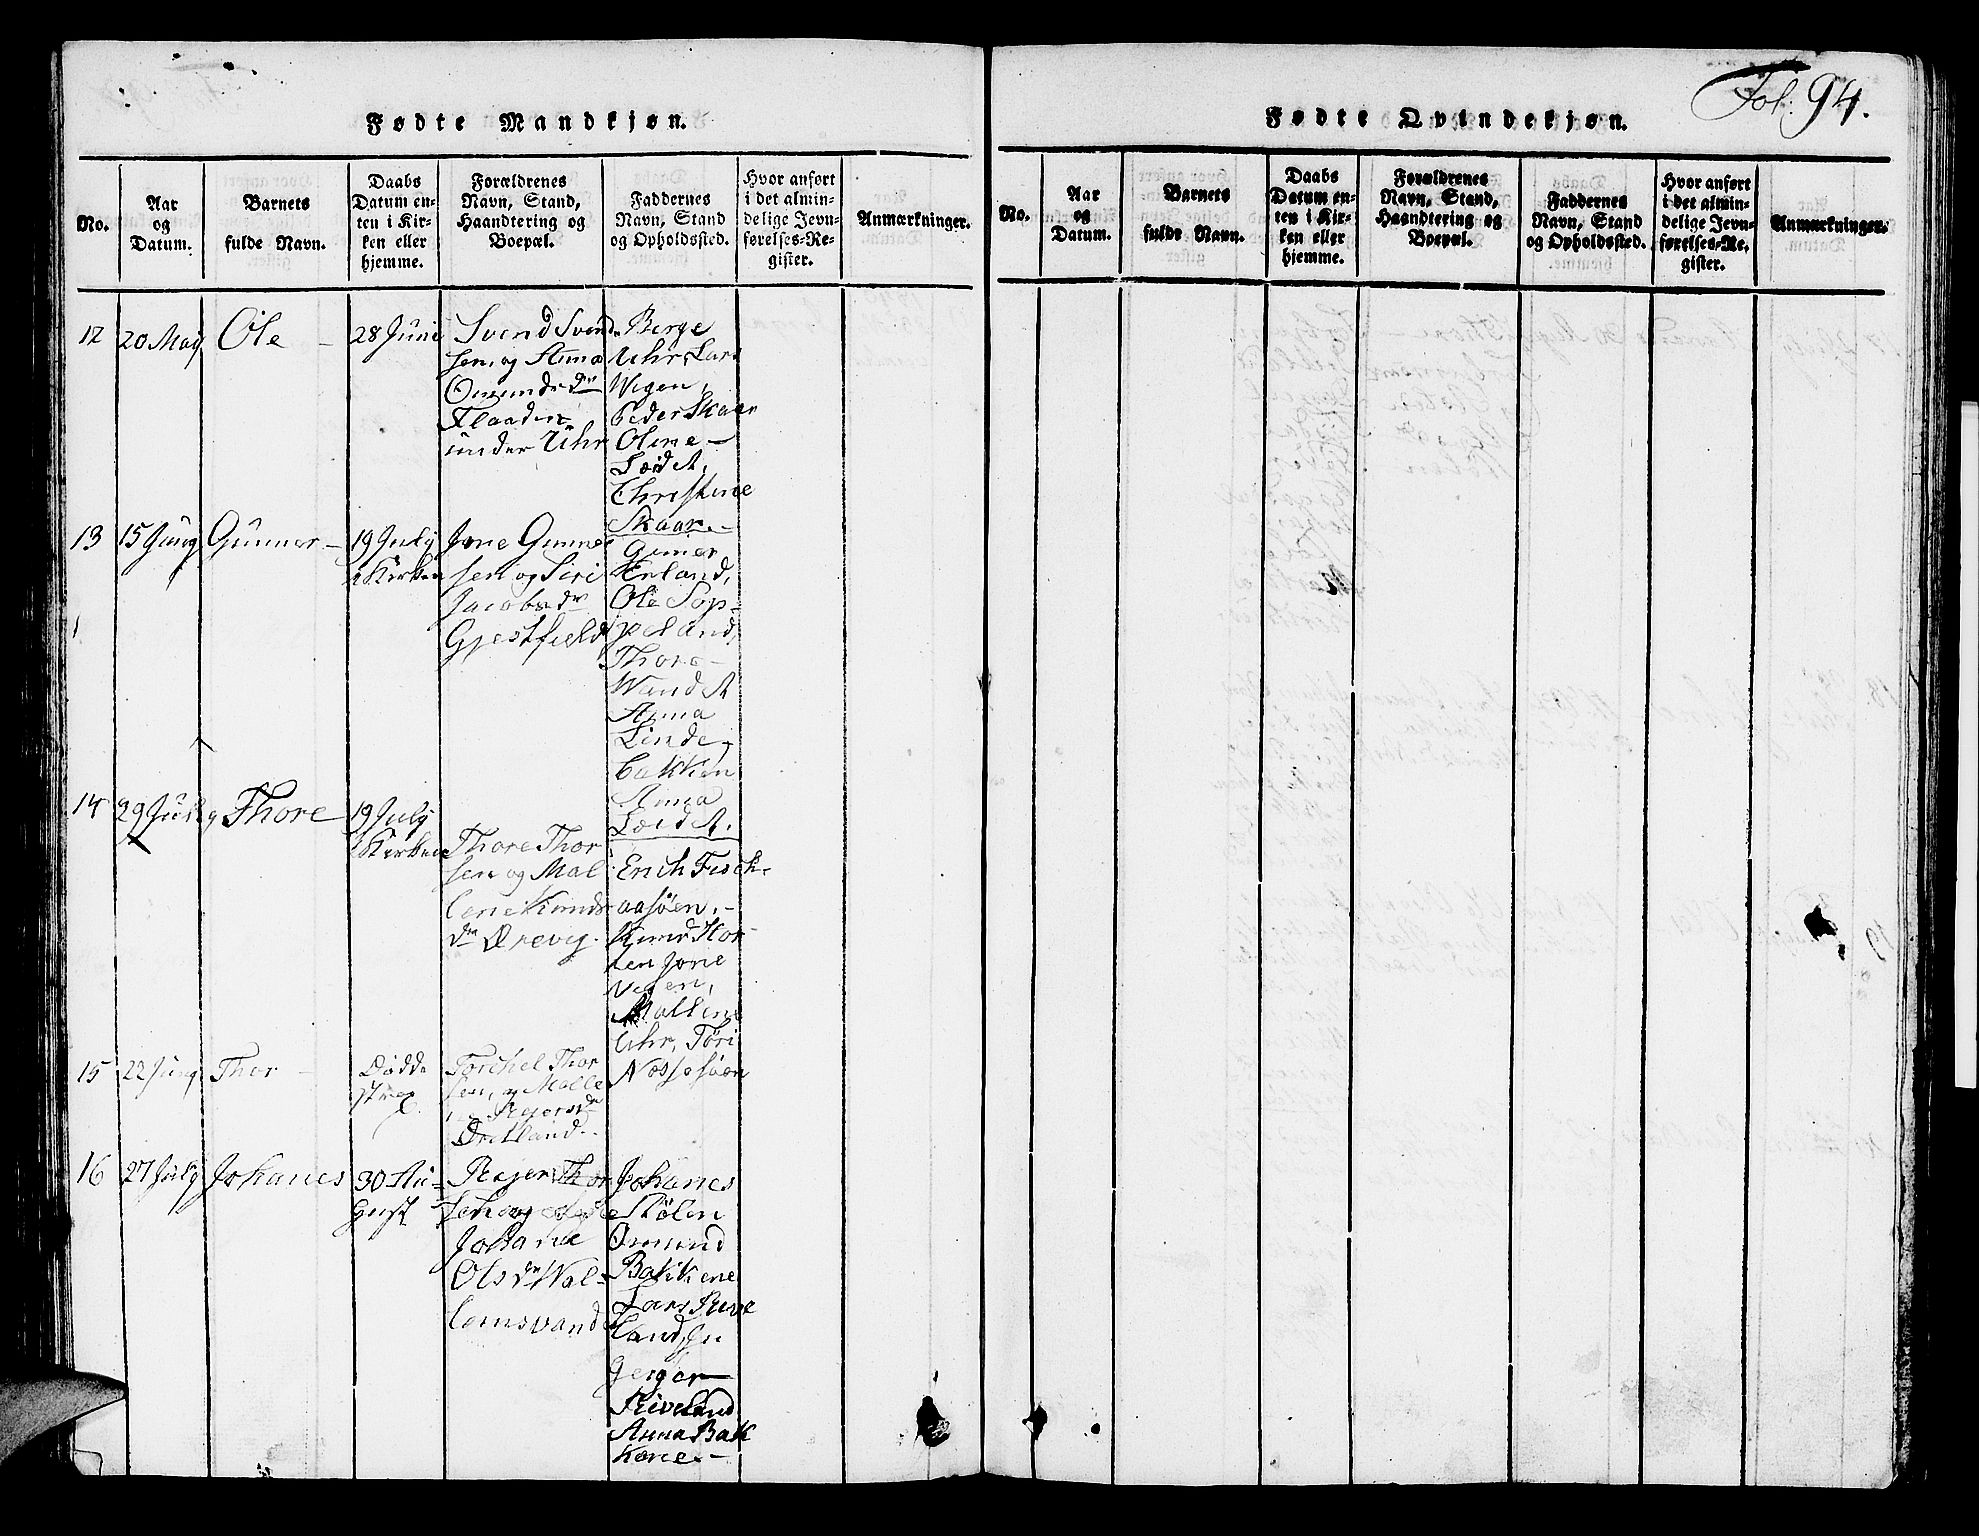 Fol. 94.
Fødte Mandkjøn.
No.
Aar
og
Datum.
Barnets
fulde Navn.
Daabs
Datum en-
ten i Kir-
ken eller
hjemme.
Forældrenes
Navn, Stand,
Haandtering og
Boepæl.
Faddernes
Navn, Stand
og Opholdssted.
Hvor anført
i det almin-
delige Jevn-
førelses-Re-
gister.
Anmærkninger.
12
20 May
Ole
28 Juni
Svend Svend
sen og Anna
Omunds dtr
Flaaden
under Uhr
Berge
Uhr, Lars
Wegen,
Peder Skaar
Oline
Leidt,
Christine
Skaar.
13
15 Juny
Gunner
19 July
i Kirken
Jone Gunner
sen og Siri
Jacobs dtr
Gjestfield
Guner
Erland,
Ole Sop-
peland,
Thore
Wandt
Anna
Linde-
bakken
Anna
Leidt.
14
29 July
Thore
19 July
i Kirken
Thore Thor
sen og Mal
lene Knuds
dtr Drevig.
Erich Fisk-
aasøen.
Knud Hor-
ten Jone
Vegen,
Mallene
Uhr, Tøri
Nessesøen
15
22 Juny
Thor
Dødde
strax
Torchel Thor
sen, og Malle
Ørekland.
16
27 July
Johanes
30 Au-
gust
Rejer Thor
sen og
Johane
Ols dtr Wal-
lemsvand
Johanes
Stølen
Omund
Bakkene
Lars Rive
land,
Gerger
Riveland
Anna Bak
kene.
Fødte Qvindekjøn.
No.
Aar
og
Datum.
Barnets
fulde Navn.
Daabs
Datum en-
ten i Kir-
ken eller
hjemme.
Forældrenes
Navn, Stand,
Haandtering og
Boepæl.
Faddernes
Navn, Stand
og Opholdssted.
Hvor anført
i det almin-
delige Jevn-
førelses-Re-
gister.
Anmærkninger.